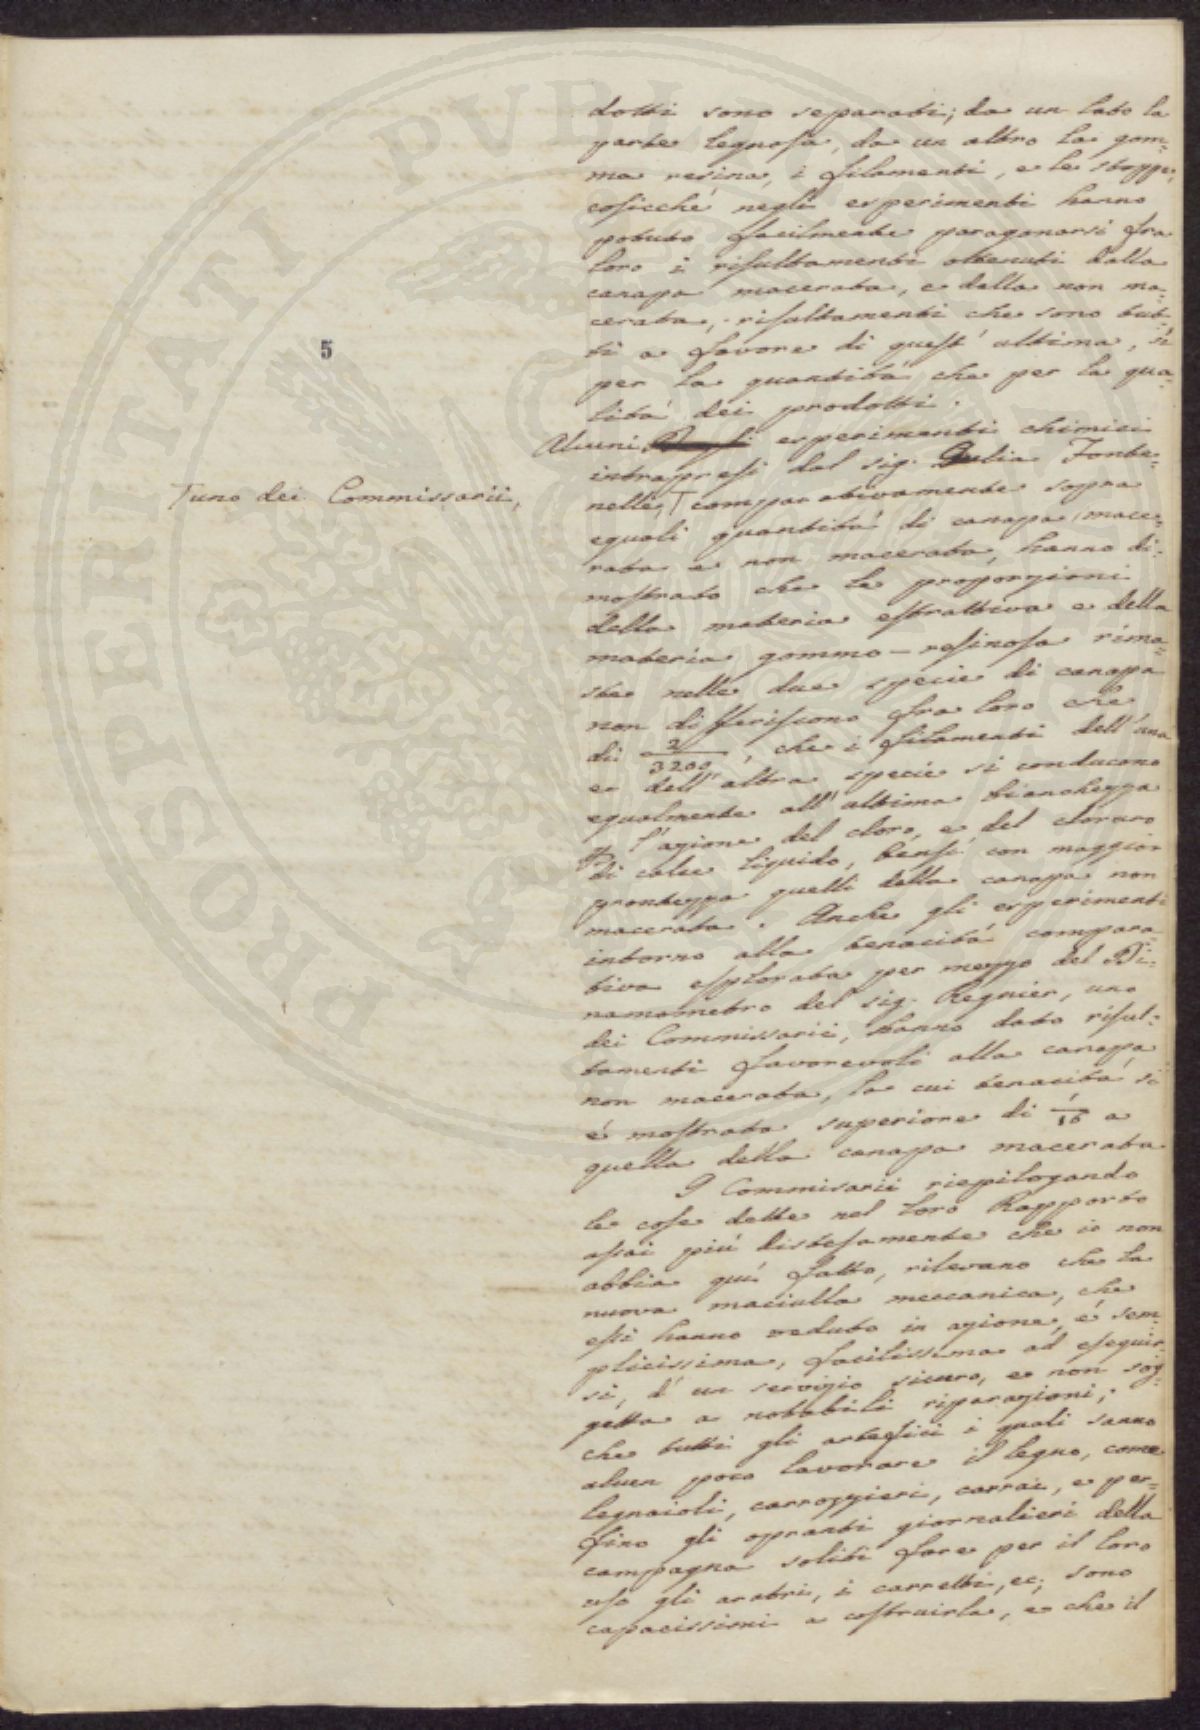 dotti sono separati; da un lato la
parte legnosa, da un altro la gom-
ma resina, i filamenti, e le stoppe;
cosicché negli esperimenti hanno
potuto facilmente paragonarsi fra
loro i risultamenti ottenuti dalla
canapa macerata, e della non ma-
cerata, risultamenti che sono tut-
5
ti a favore di quest' ultima, sì
per la quantità che per la qua-
lità dei prodotti.
Alcuni esperimenti chimici
intrapresi dal sig. Julia Fonte-
Γ uno dei Commissarii,
nelle, Γ comparativamente sopra
eguali quantità di canapa mace-
rata e non macerata, hanno di-
mostrato che le proporzioni
della materia estrattiva e della
materia gommo-resinosa rima-
ste nelle due specie di canapa
non differiscono fra loro che
di 2/3200, che i filamenti dell' una
e dell' altra specie si conducono
egualmente all' ultima bianchezza
l' azione del cloro, e del cloruro
di calce liquido, bensì con maggior
prontezza quelli della canapa non
macerata. Anche gli esperimenti
intorno alla tenacità compara-
tiva esplorata per mezzo del Di-
namometro del sig. Regnier, uno
dei Commissarii, hanno dato risul-
tamenti favorevoli alla canapa
non macerata, la cui tenacità si
è mostrata superiore di 1/16 a
quella della canapa macerata
I Commisarii riepilogando
le cose dette nel loro Rapporto
assai più distesamente che io non
abbia quì fatto, rilevano che la
nuova maciulla meccanica, che
essi hanno veduto in azione, è sem-
plicissima, facilissima ad eseguir-
si, d' un servizio sicuro, e non sog-
getta a notabili riparazioni;
che tutti gli artefici i quali sanno
alcun poco lavorare il legno, come
legnaioli, carrozzieri, carrai, e per-
fino gli opranti giornalieri della
campagna soliti fare per il loro
uso gli aratri, i carretti, ec; sono
capacissimi a costruirla, e che il
PROSPERITATI PVBLIC